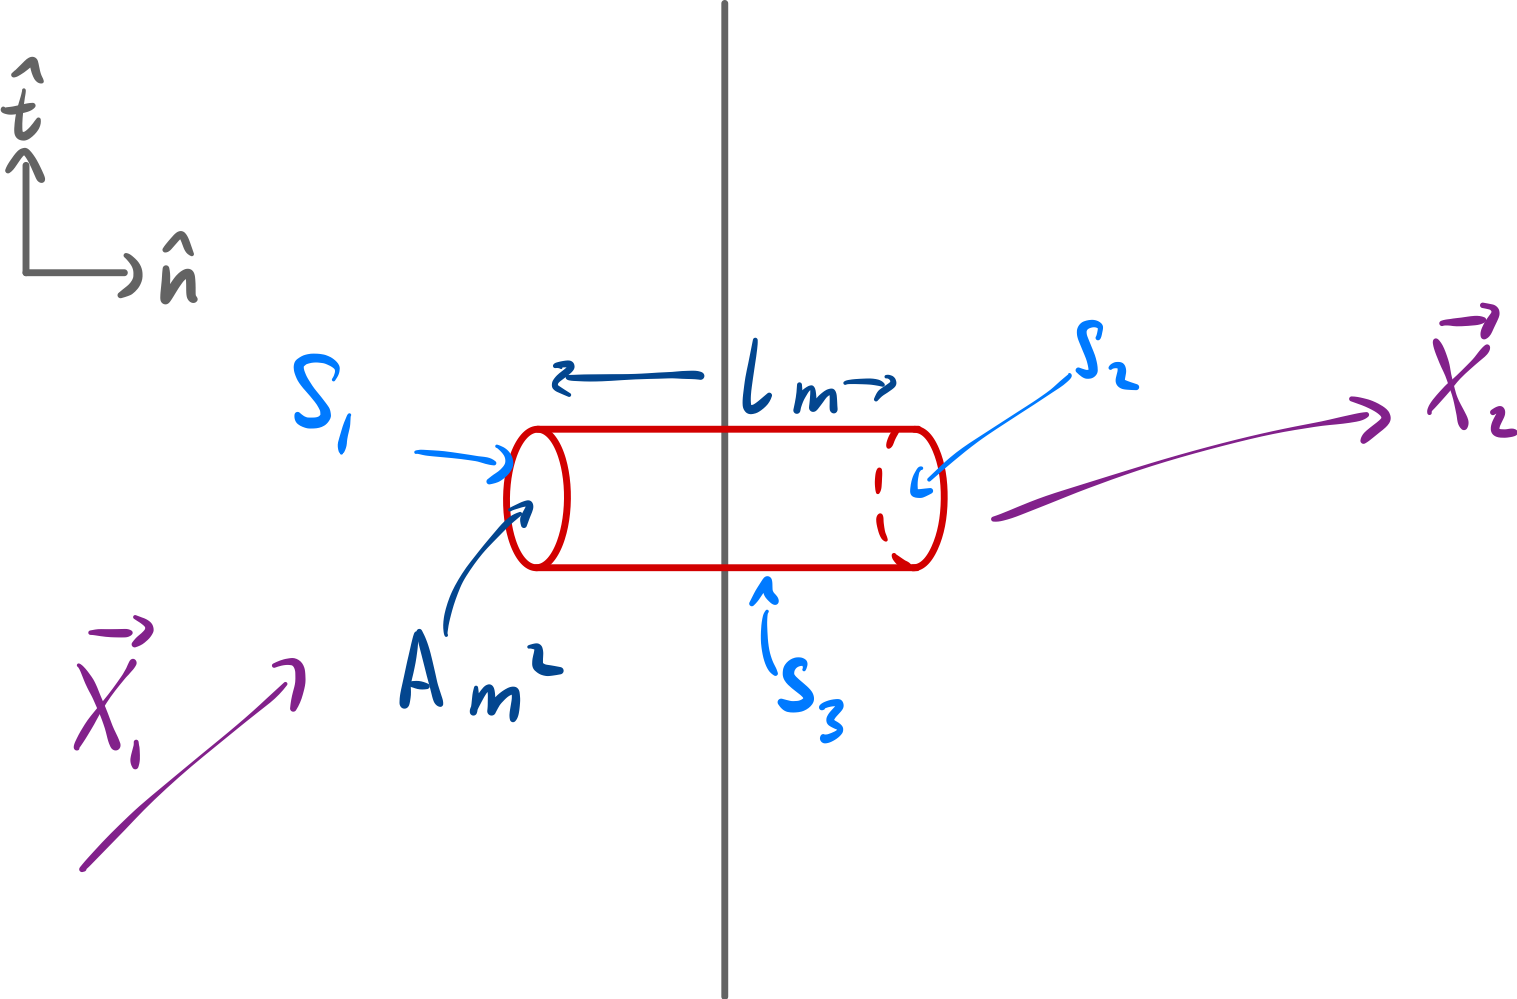 t̂
n̂
S₁
l m
S₂
X⃗₂
X⃗₁
A m²
S₃